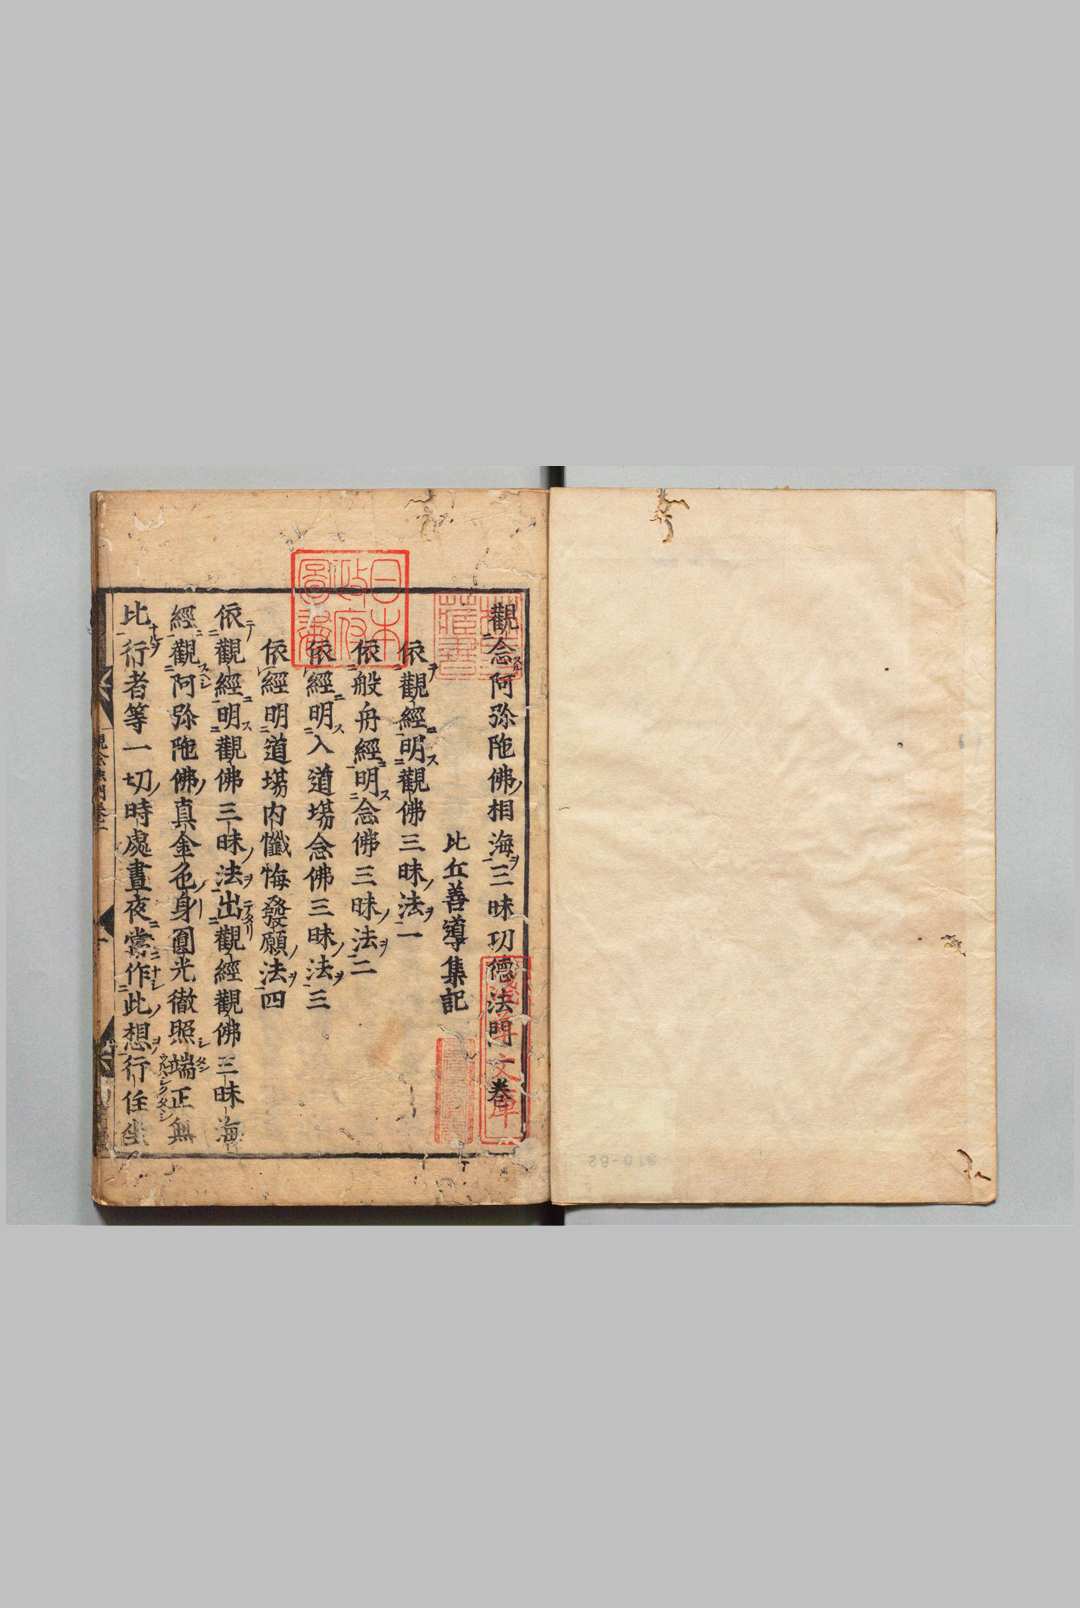 觀念阿弥陁佛相海三昧功德法門一卷
比丘善導集記
依觀經明觀佛三昧法一
依般舟經明念佛三昧法二
依經明入道場念佛三昧法三
依經明道場内懺悔發願法四
依觀經明觀佛三昧法出觀經觀佛三昧海
經觀阿弥陁佛真金色身圓光徹照端正無
比行者等一切時處晝夜常作此想行住坐
日本
政府
圖書